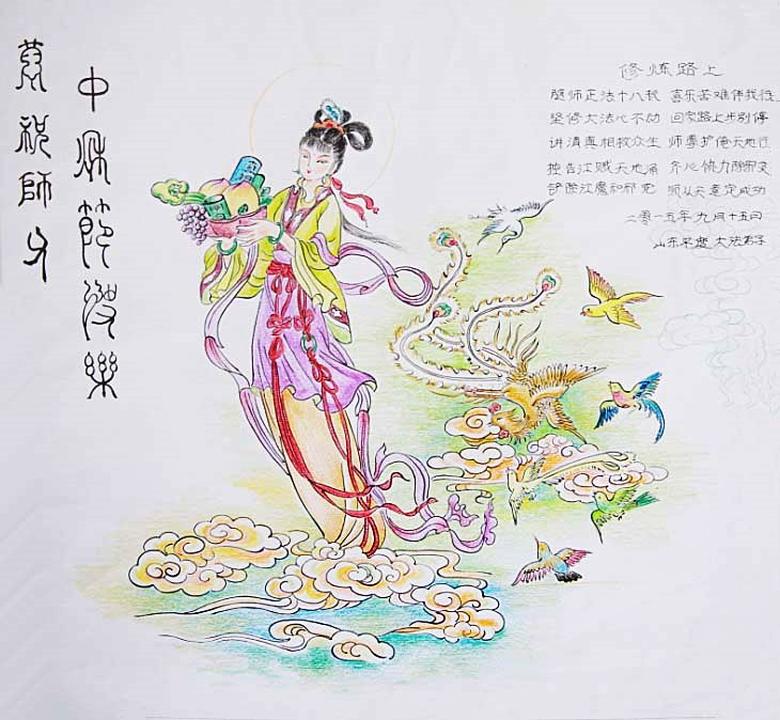 恭祝師父
中秋節快樂
修炼路上
师正法十八 喜乐苦难伴我往
坚修大法心不动 回家路上步别停
讲清真相救众生 师尊护佑天地行
控告江贼天地涌 齐心协力除邪
铲除江魔和邪党 顺从天意定成功
二零一五年九月十五日
山东 大法弟子